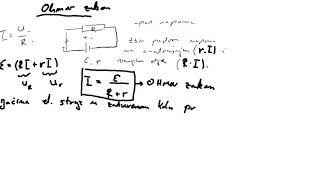 Ohmov zakon
I = U/R
R
- pad napona
zbir padova napona
na unutrašnjem (r·I) i
ε, r
(R·I).
ε = (RI + rI)
U_R U_r
I = ε/(R+r) → Ohmov zakon
Jačina el. struje u zatvorenom kolu pr